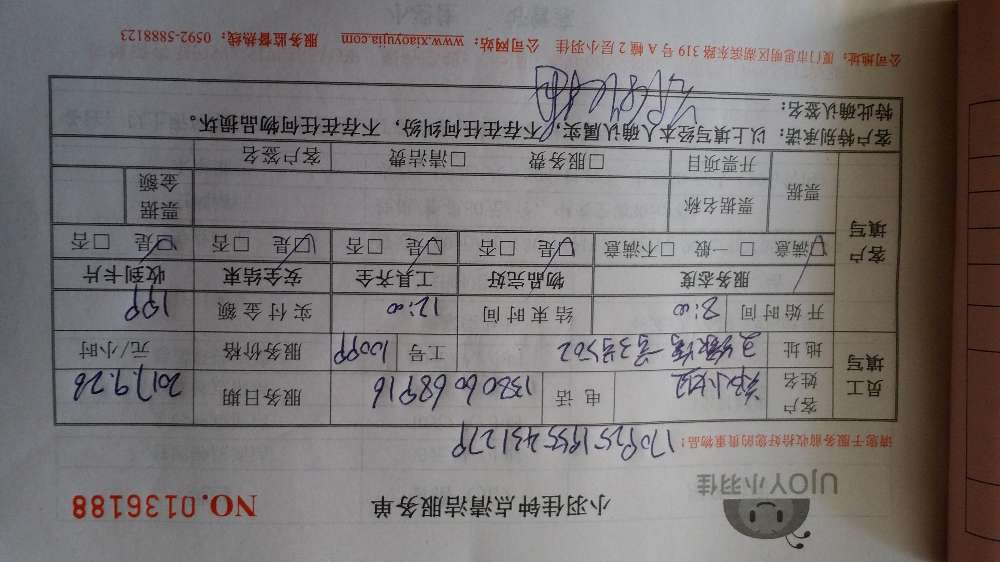 UJOY小羽佳
小羽佳钟点清洁服务单
NO.0136188
请您于服务前收拾好您的贵重物品！
员工填写
客户姓名
电话
13806068916
服务日期
2017.9.26
地址
工号
服务价格
元/小时
开始时间
8:00
结束时间
12:00
实付金额
客户填写
服务态度
物品完好
工具齐全
安全结束
收到卡片
☑满意 □一般 □不满意
☑是 □否
☑是 □否
☑是 □否
☑是 □否
票据
票据名称
票据金额
开票项目
□服务费 □清洁费
客户签名
客户特别承诺：以上填写经本人确认属实，不存在任何纠纷，不存在任何物品损坏。
特此确认签名：
公司地址：厦门市思明区湖滨东路319号A幢2层小羽佳 公司网站：www.xiaoyujia.com 服务监督热线：0592-5888123